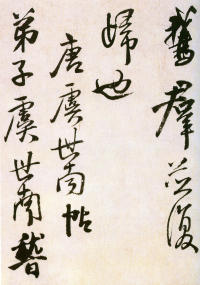 鵞群並復
歸也
唐虞世南帖
弟子虞世南稽